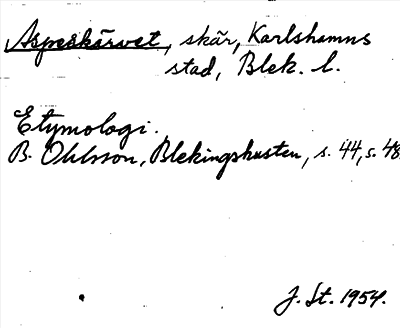 Aspeskärvet, skär, Karlshamns
stad, Blek. l.
Etymologi.
B. Ohlsson, Blekingskusten, s. 44, s. 48.
J. St. 1954.